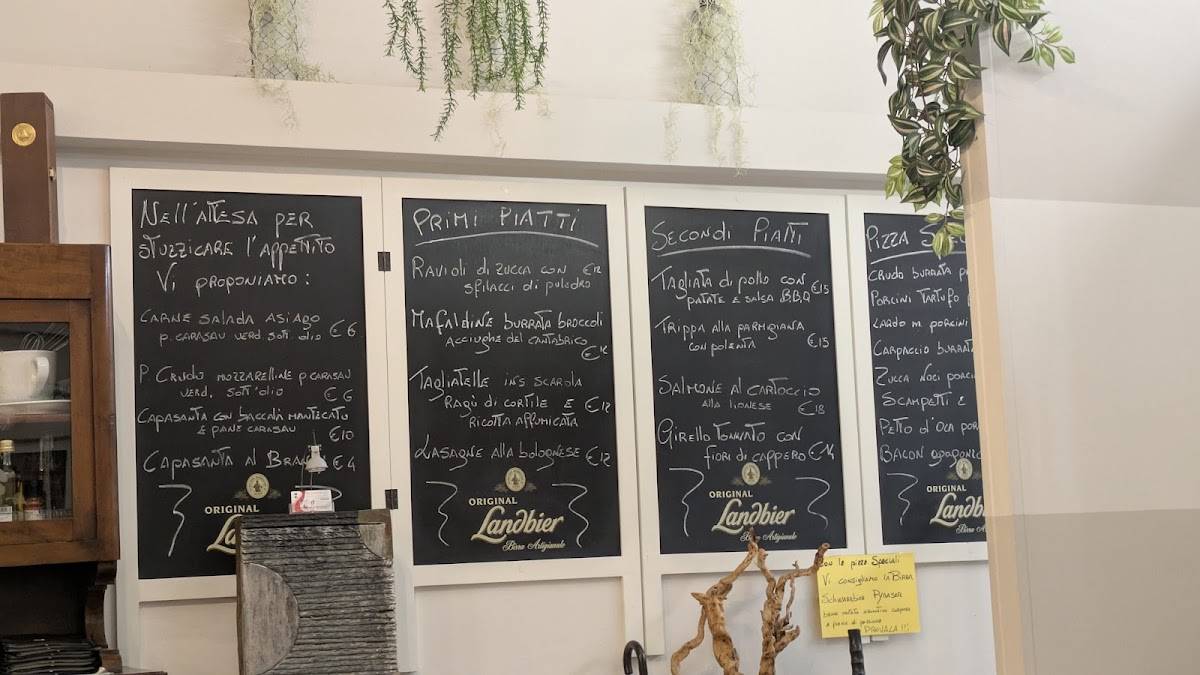 Nell'attesa per
stuzzicare l'appetito
Vi proponiamo:
Carne salada Asiago
p. carasau verd. sott'olio €6
P. Crudo mozzarelline p carasau
verd. sott'olio €6
Capasanta con baccalà mantecato
e pane carasau €10
Capasanta al €4
ORIGINAL
PRIMI PIATTI
Ravioli di zucca con €12
sfilacci di puledro
Mafaldine burrata broccoli
acciughe del cantabrico
Tagliatelle scarola
Ragù di cortile e €12
ricotta affumicata
Lasagne alla bolognese €12
ORIGINAL
Landbier
Birra Artigianale
SECONDI PIATTI
Tagliata di pollo con €15
patate e salsa B.B.Q
Trippa alla parmigiana
con polenta €15
Salmone al cartoccio
alla lionese €18
Girello tonnato con
fiori di cappero €14
ORIGINAL
Landbier
Birra Artigianale
PIZZA
Crudo burrata
Porcini Tartufo
Lardo m. porcini
Carpaccio burrata
Zucca Noci porcini
Scampetti
Petto d'oca
Bacon
ORIGINAL
Landbier
Birra
con le pizze Speciali
Vi consigliamo la Birra
PROVALA!!!